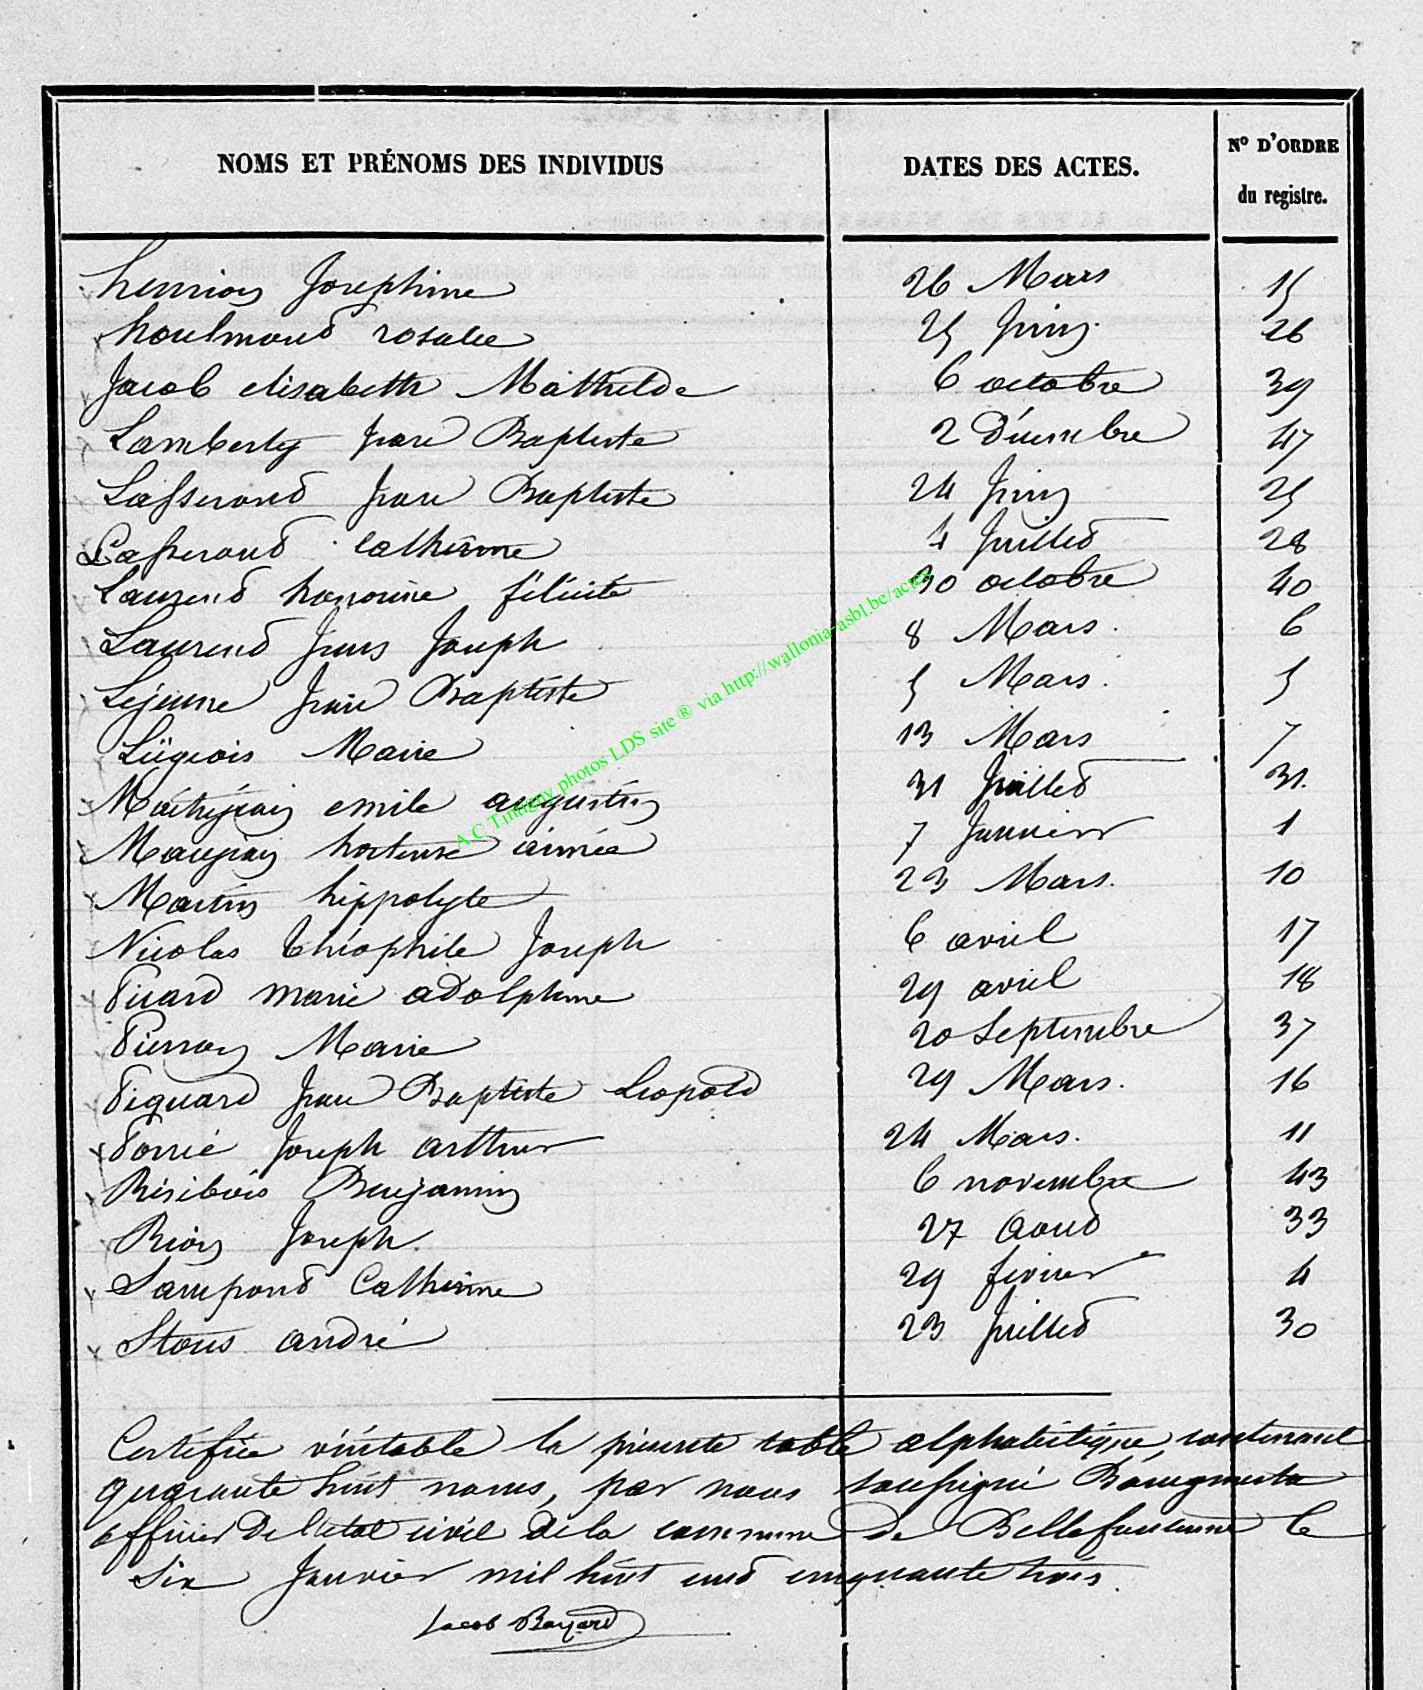 NOMS ET PRÉNOMS DES INDIVIDUS DATES DES ACTES. N° D'ORDRE du registre.
henrion Josephine 26 Mars 15
houlmond rosalie 25 Juin 26
Jacob elisabeth Mathilde 6 octobre 39
Lamberty jean Baptiste 2 Décembre 47
Lasserond jean Baptiste 24 Juin 25
Lasserond Catherine 4 Juillet 28
Laurend honorine félicité 30 octobre 40
Laurend Joseph 8 Mars. 6
Lejeune Jean Baptiste 5 Mars. 5
Liégeois Marie 13 Mars 7
emile augustin 31 Juillet 31.
Maujean hortense aimée 7 Janvier 1
Martin hippolyte 23 Mars. 10
Nicolas théophile Joseph 6 avril 17
Picard marie adolphine 29 avril 18
Pierron Marie 20 Septembre 37
Piquard Jean Baptiste Leopold 29 Mars. 16
Porrié Joseph arthur 24 Mars. 11
Résibois Benjamin 6 novembre 43
Rion Joseph. 27 Aoud 33
Sampond Catherine 29 février 4
Stous andré 23 Juillet 30
Certifiée véritable la présente table alphabétique, contenant
quarante huit noms, par nous soussigné
officier de l'etat civil de la commune de Bellefontaine le
six Janvier mil huit cend cinquante trois.
Jacob Bayard
A.C Tintigny photos LDS site ® via http://wallonia-asbl.be/actes